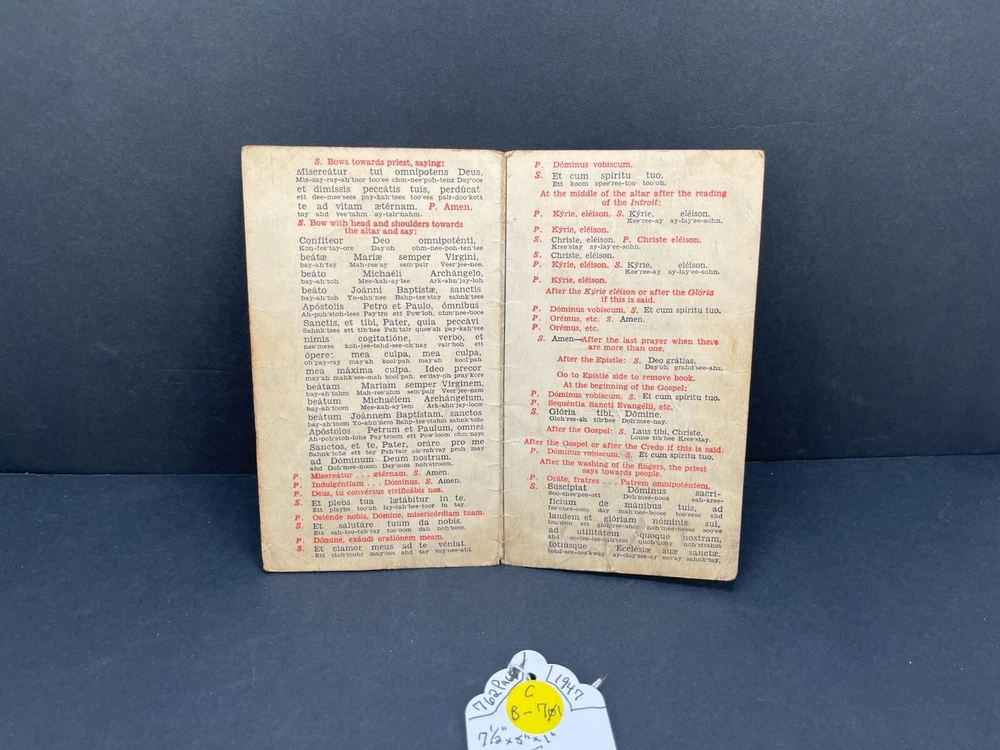 S. Bows towards priest, saying:
Misereátur tui omnípotens Deus,
Miz-zay-ray-ah'toor too'ee ohm-nee'poh-tenz Day'oos
et dimíssis peccátis tuis, perdúcat
ett dee-mee'sees pay-kah'tees too'ees pair-doo'kott
te ad vitam ætérnam. P. Amen.
tay ahd vee'tahm ay-tair'nahm.
S. Bow with head and shoulders towards
the altar and say:
Confíteor Deo omnipoténti,
Kon-fee'tay-ore Day'oh ohm-nee-poh-ten'tee
beátæ Maríæ semper Vírgini,
bay-ah'tay Mah-ree'ay sem'pair Veer'jee-nee,
beáto Michaéli Archángelo,
bay-ah'toh Mee-kah-ay'lee Ark-ahn'jay-loh
beáto Joánni Baptístæ, sanctis
bay-ah'toh Yo-ahn'nee Bahp-tee'stay sahnk'tees
Apóstolis Petro et Paulo, ómnibus
Ah-poh'stoh-lees Pay'tro ett Pow'loh, ohm'nee-boos
Sanctis, et tibi, Pater, quia peccávi
Sahnk'tees ett tib'bee Pah'tair quee'ah pay-kah'vee
nimis cogitatióne, verbo, et
nee'mees koh-jee-tahd-see-oh'nay vair'boh ett
ópere: mea culpa, mea culpa,
oh'pay-ray may'ah kool'pah may'ah kool'pah
mea máxima culpa. Ideo precor
may'ah mahk'see-mah kool'pah. ee'day-oh pray'kore
beátam Maríam semper Vírginem,
bay-ah'tahm Mah-ree'ahm sem'pair Veer'jee-nem
beátum Michaélem Archángelum,
bay-ah'toom Mee-kah-ay'lem Ark-ahn'jay-loom
beátum Joánnem Baptístam, sanctos
bay-ah'toom Yo-ahn'nem Bahp-tee'stahm sahnk'tohs
Apóstolos Petrum et Paulum, omnes
Ah-poh'stoh-lohs Pay'troom ett Pow'loom ohm'nays
Sanctos, et te, Pater, oráre pro me
Sahnk'tohs ett tay Pah'tair oh-rah'ray proh may
ad Dóminum Deum nostrum.
ahd Doh'mee-noom Day'oom noh'stroom.
P. Misereátur . . . ætérnam. S. Amen.
P. Indulgéntiam . . . Dóminus. S. Amen.
P. Deus, tu convérsus vivificábis nos.
S. Et plebs tua lætábitur in te.
Ett playbs too'ah lay-tah'bee-toor in tay.
P. Osténde nobis, Dómine, misericórdiam tuam.
S. Et salutáre tuum da nobis.
Ett sah-loo-tah'ray too'oom dah noh'bees.
P. Dómine, exáudi oratiónem meam.
S. Et clamor meus ad te véniat.
Ett clah'mohr may'oos ahd tay vay'nee-aht
P. Dóminus vobíscum.
S. Et cum spíritu tuo.
Ett koom spee'ree-too too'oh.
At the middle of the altar after the reading
of the Introit:
P. Kýrie, eléison. S. Kýrie, eléison.
Kee'ree-ay ay-lay'ee-sohn.
P. Kýrie, eléison.
S. Christe, eléison. P. Christe eléison.
Kree'stay ay-lay'ee-sohn.
S. Christe, eléison.
P. Kýrie, eléison. S. Kýrie, eléison.
Kee'ree-ay ay-lay'ee-sohn.
P. Kýrie, eléison.
After the Kýrie eléison or after the Glória
if this is said.
P. Dóminus vobíscum. S. Et cum spíritu tuo.
P. Orémus, etc. S. Amen.
P. Orémus, etc.
S. Amen—After the last prayer when there
are more than one.
After the Epistle: S. Deo grátias.
Day'oh grahd'see-ahs.
Go to Epistle side to remove book.
At the beginning of the Gospel:
P. Dóminus vobíscum. S. Et cum spíritu tuo.
P. Sequéntia Sancti Evangélii, etc.
S. Glória tibi, Dómine.
Gloh'ree-ah tib'bee Doh'mee-nay.
After the Gospel: S. Laus tibi, Christe.
Louse tib'bee Kree'stay.
After the Gospel or after the Credo if this is said:
P. Dóminus vobíscum. S. Et cum spíritu tuo.
After the washing of the fingers, the priest
says towards people.
P. Oráte, fratres . . . Patrem omnipoténtem.
S. Suscípiat Dóminus sacri-
Soo-shee'pee-ott Doh'mee-noos sah-kree-
fícium de mánibus tuis, ad
fee'chee-oom day mah'nee-boose too'eese ahd
laudem et glóriam nóminis sui,
lou'dem ett gloh'ree-ahm noh'mee-neese soo'ee
ad utilitátem quoque nostram,
ahd oo-tee-lee-tah'tem quoh'quay noh'strahm
totiúsque Ecclésiæ suæ sanctæ.
tohd-see-oos'kway ay-clay'see-ay soo'ay sahnk'tay.
762 1947
G
B-701
7½" x 5" x 1"